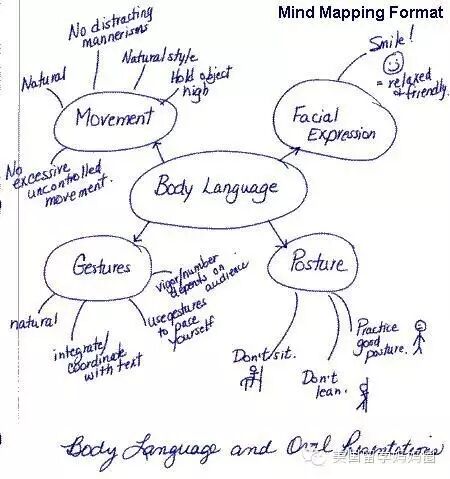 Mind Mapping Format
No distrasting
mannerisms
Natural style
Natural
Hold object
high
Movement
No
excessive
uncontrolled
movement.
Smile!
= relaxed
& friendly.
Facial
Expression
Body Language
Gestures
vigor/number
depends on
audience
use gestures
to pace
yourself
natural
integrate/
coordinate
with text
Posture
Don't sit.
Don't
lean.
Practice
good
posture.
Body Language and Oral Presentations
美国留学妈妈圈